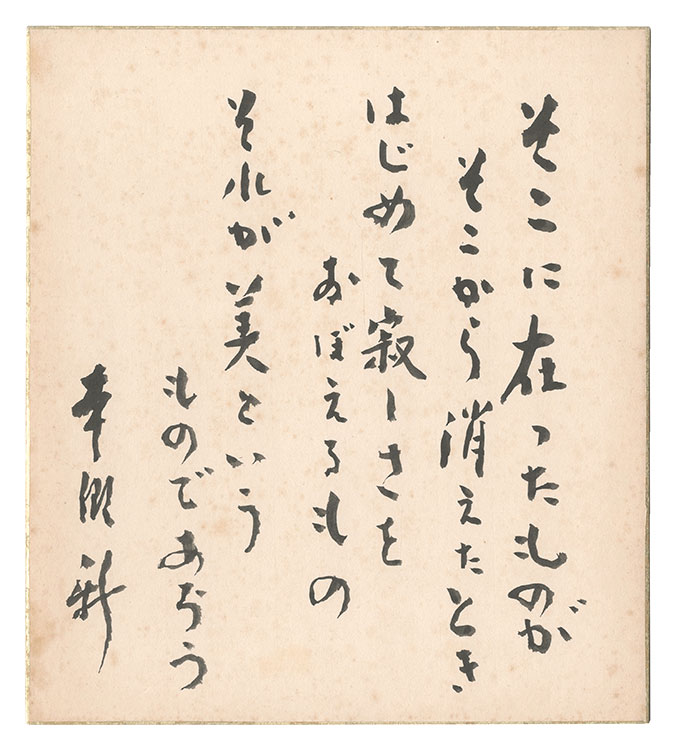 そこに在ったものが
そこから消えたとき
はじめて寂しさを
おぼえるもの
それが美という
ものであろう
本郷新